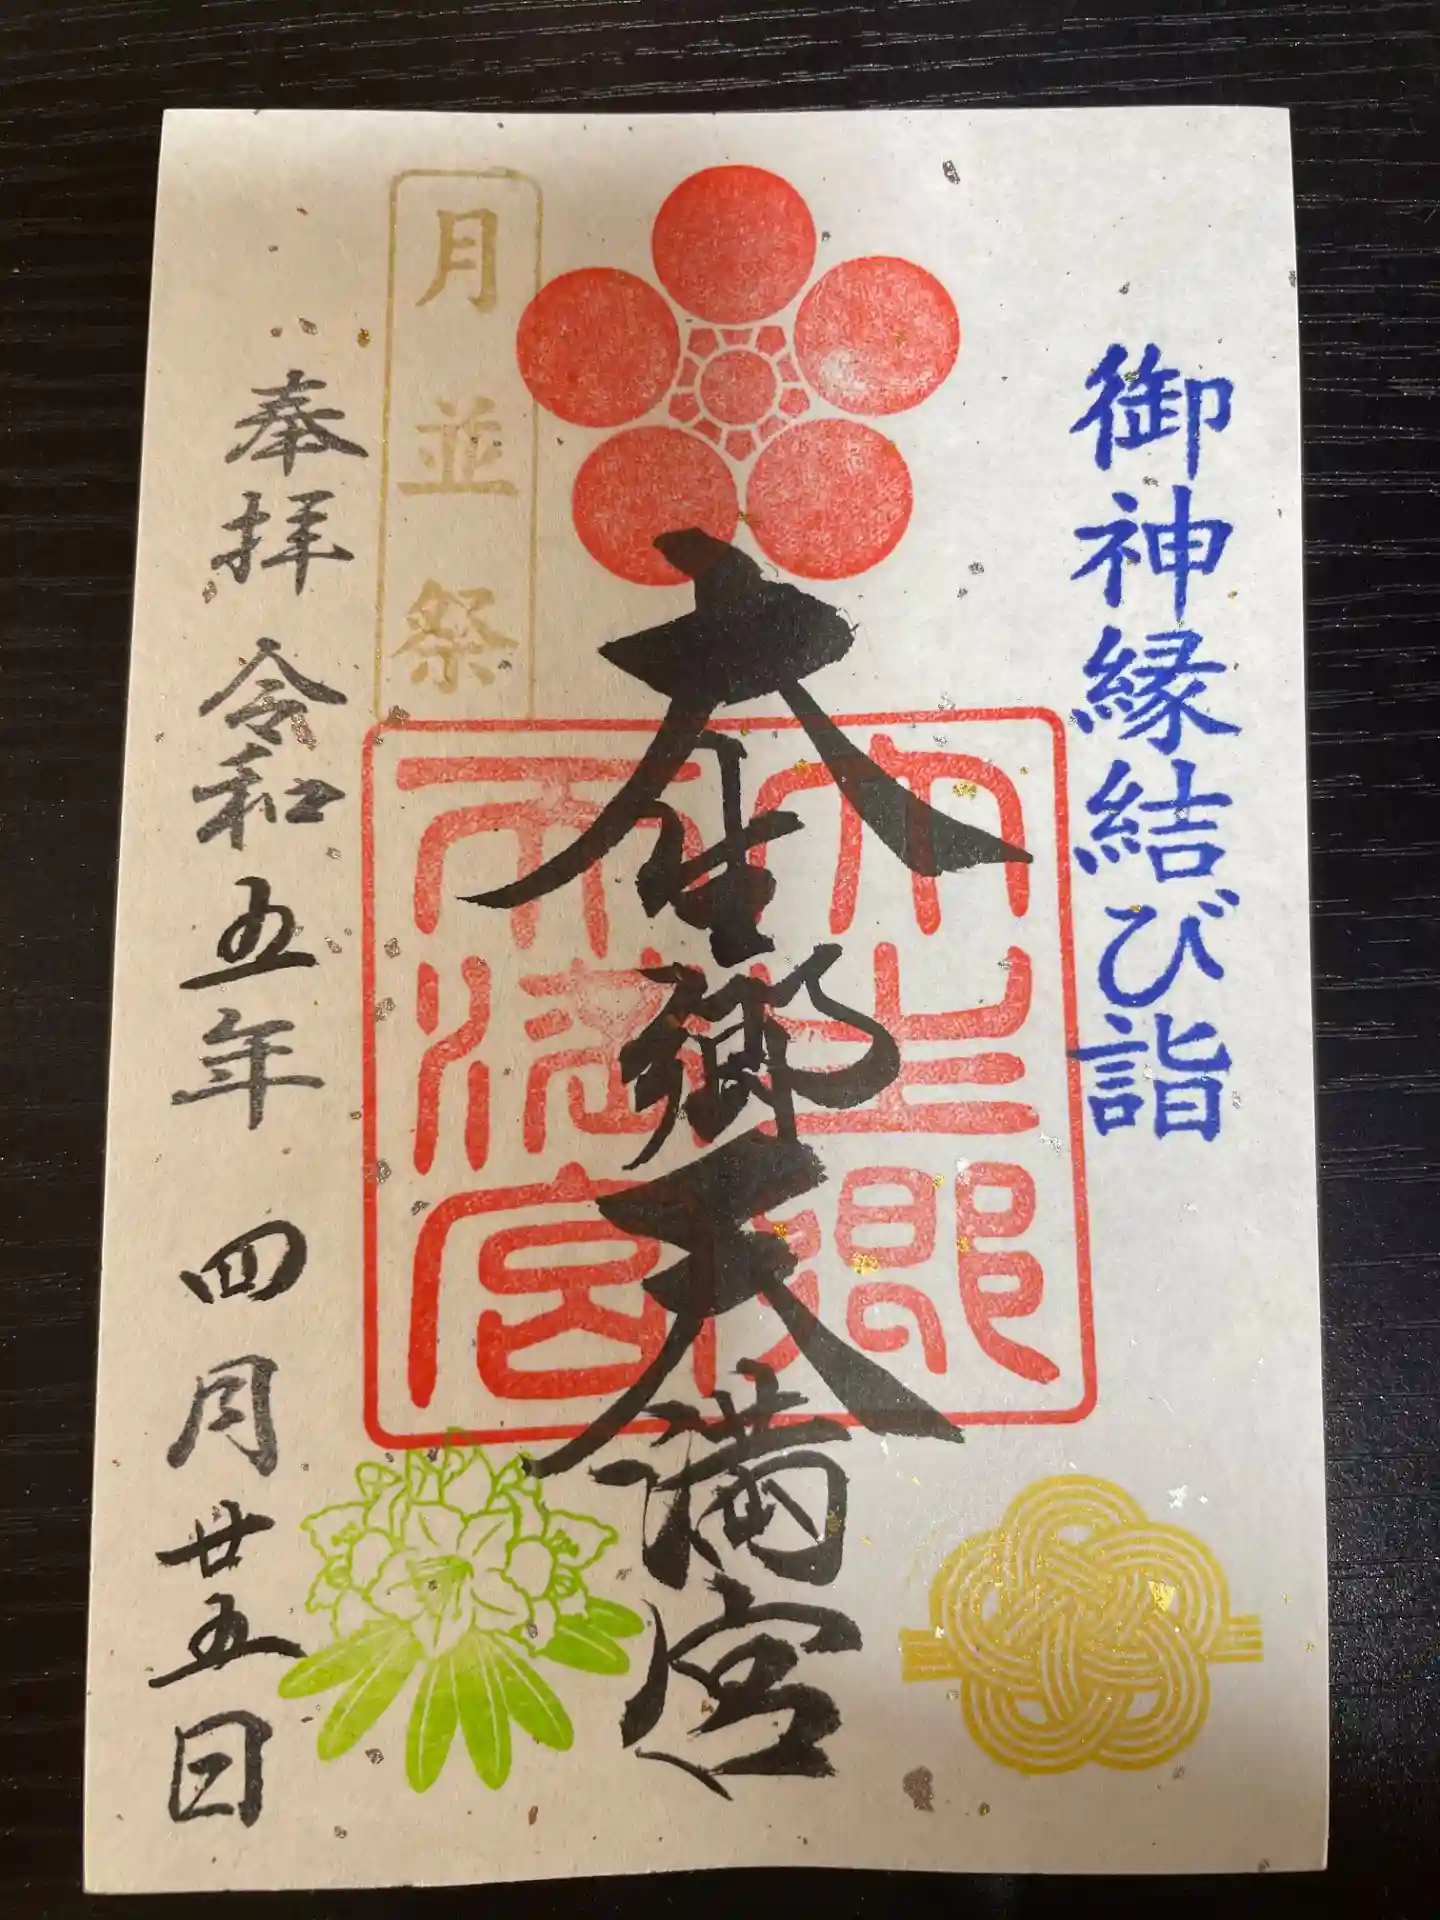 御神縁結び詣
大生郷天満宮
大生郷
天満宮
月並祭
奉拝 令和五年 四月廿五日